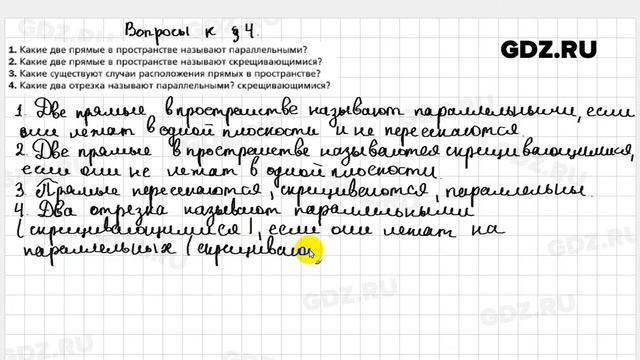 Вопросы к § 4.
GDZ.RU
1. Какие две прямые в пространстве называют параллельными?
2. Какие две прямые в пространстве называют скрещивающимися?
3. Какие существуют случаи расположения прямых в пространстве?
4. Какие два отрезка называют параллельными? скрещивающимися?
1. Две прямые в пространстве называют параллельными, если
они лежат в одной плоскости и не пересекаются.
2. Две прямые в пространстве называются скрещивающимися,
если они не лежат в одной плоскости.
3. Прямые пересекаются, скрещиваются, параллельны.
4. Два отрезка называют параллельными
(скрещивающимися), если они лежат на
параллельных (скрещиваю